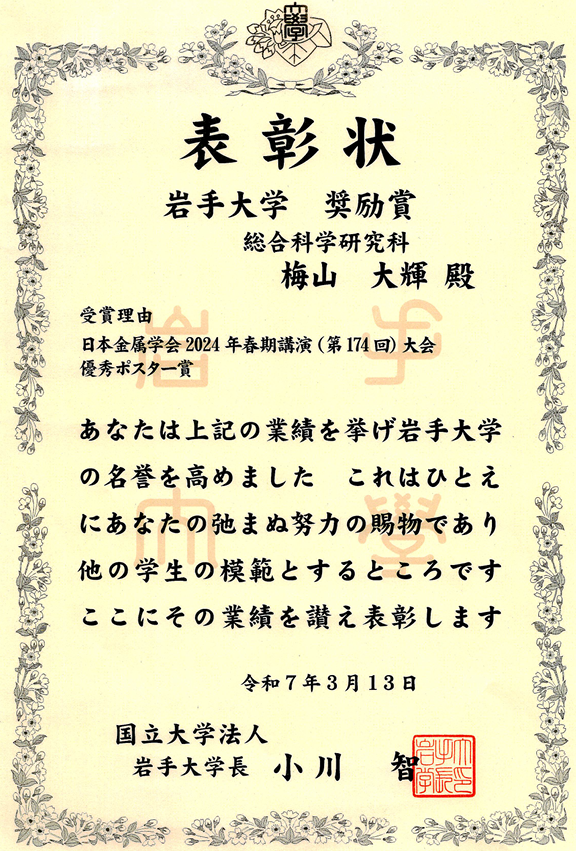 表彰状
岩手大学　奨励賞
総合科学研究科
梅山　大輝 殿
受賞理由
日本金属学会2024年春期講演（第174回）大会
優秀ポスター賞
あなたは上記の業績を挙げ岩手大学
の名誉を高めました　これはひとえ
にあなたの弛まぬ努力の賜物であり
他の学生の模範とするところです
ここにその業績を讃え表彰します
令和７年３月１３日
国立大学法人
岩手大学長　小川　智
岩手
大學